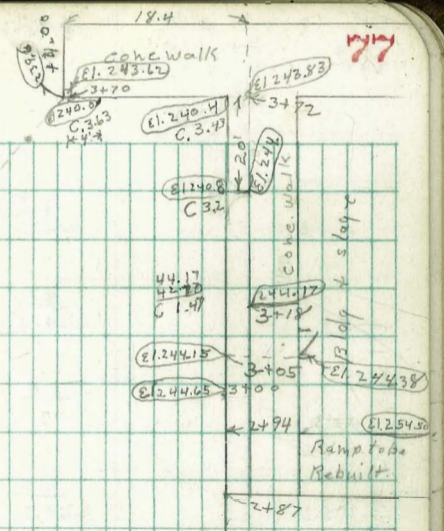 77
18.4
conc. walk
El. 243.62
3+70
El 243.83
3+72
El. 240.4
C. 3.43
240.0
C. 3.63
20'
El. 244
El 240.8
C 3.2
conc. walk
Bldg
44.17
C 1.47
244.17
3+18
El. 244.15
3+05
El. 244.38
El 244.65
3+00
2+94
El. 254.50
Ramp to be
Rebuilt.
2+87